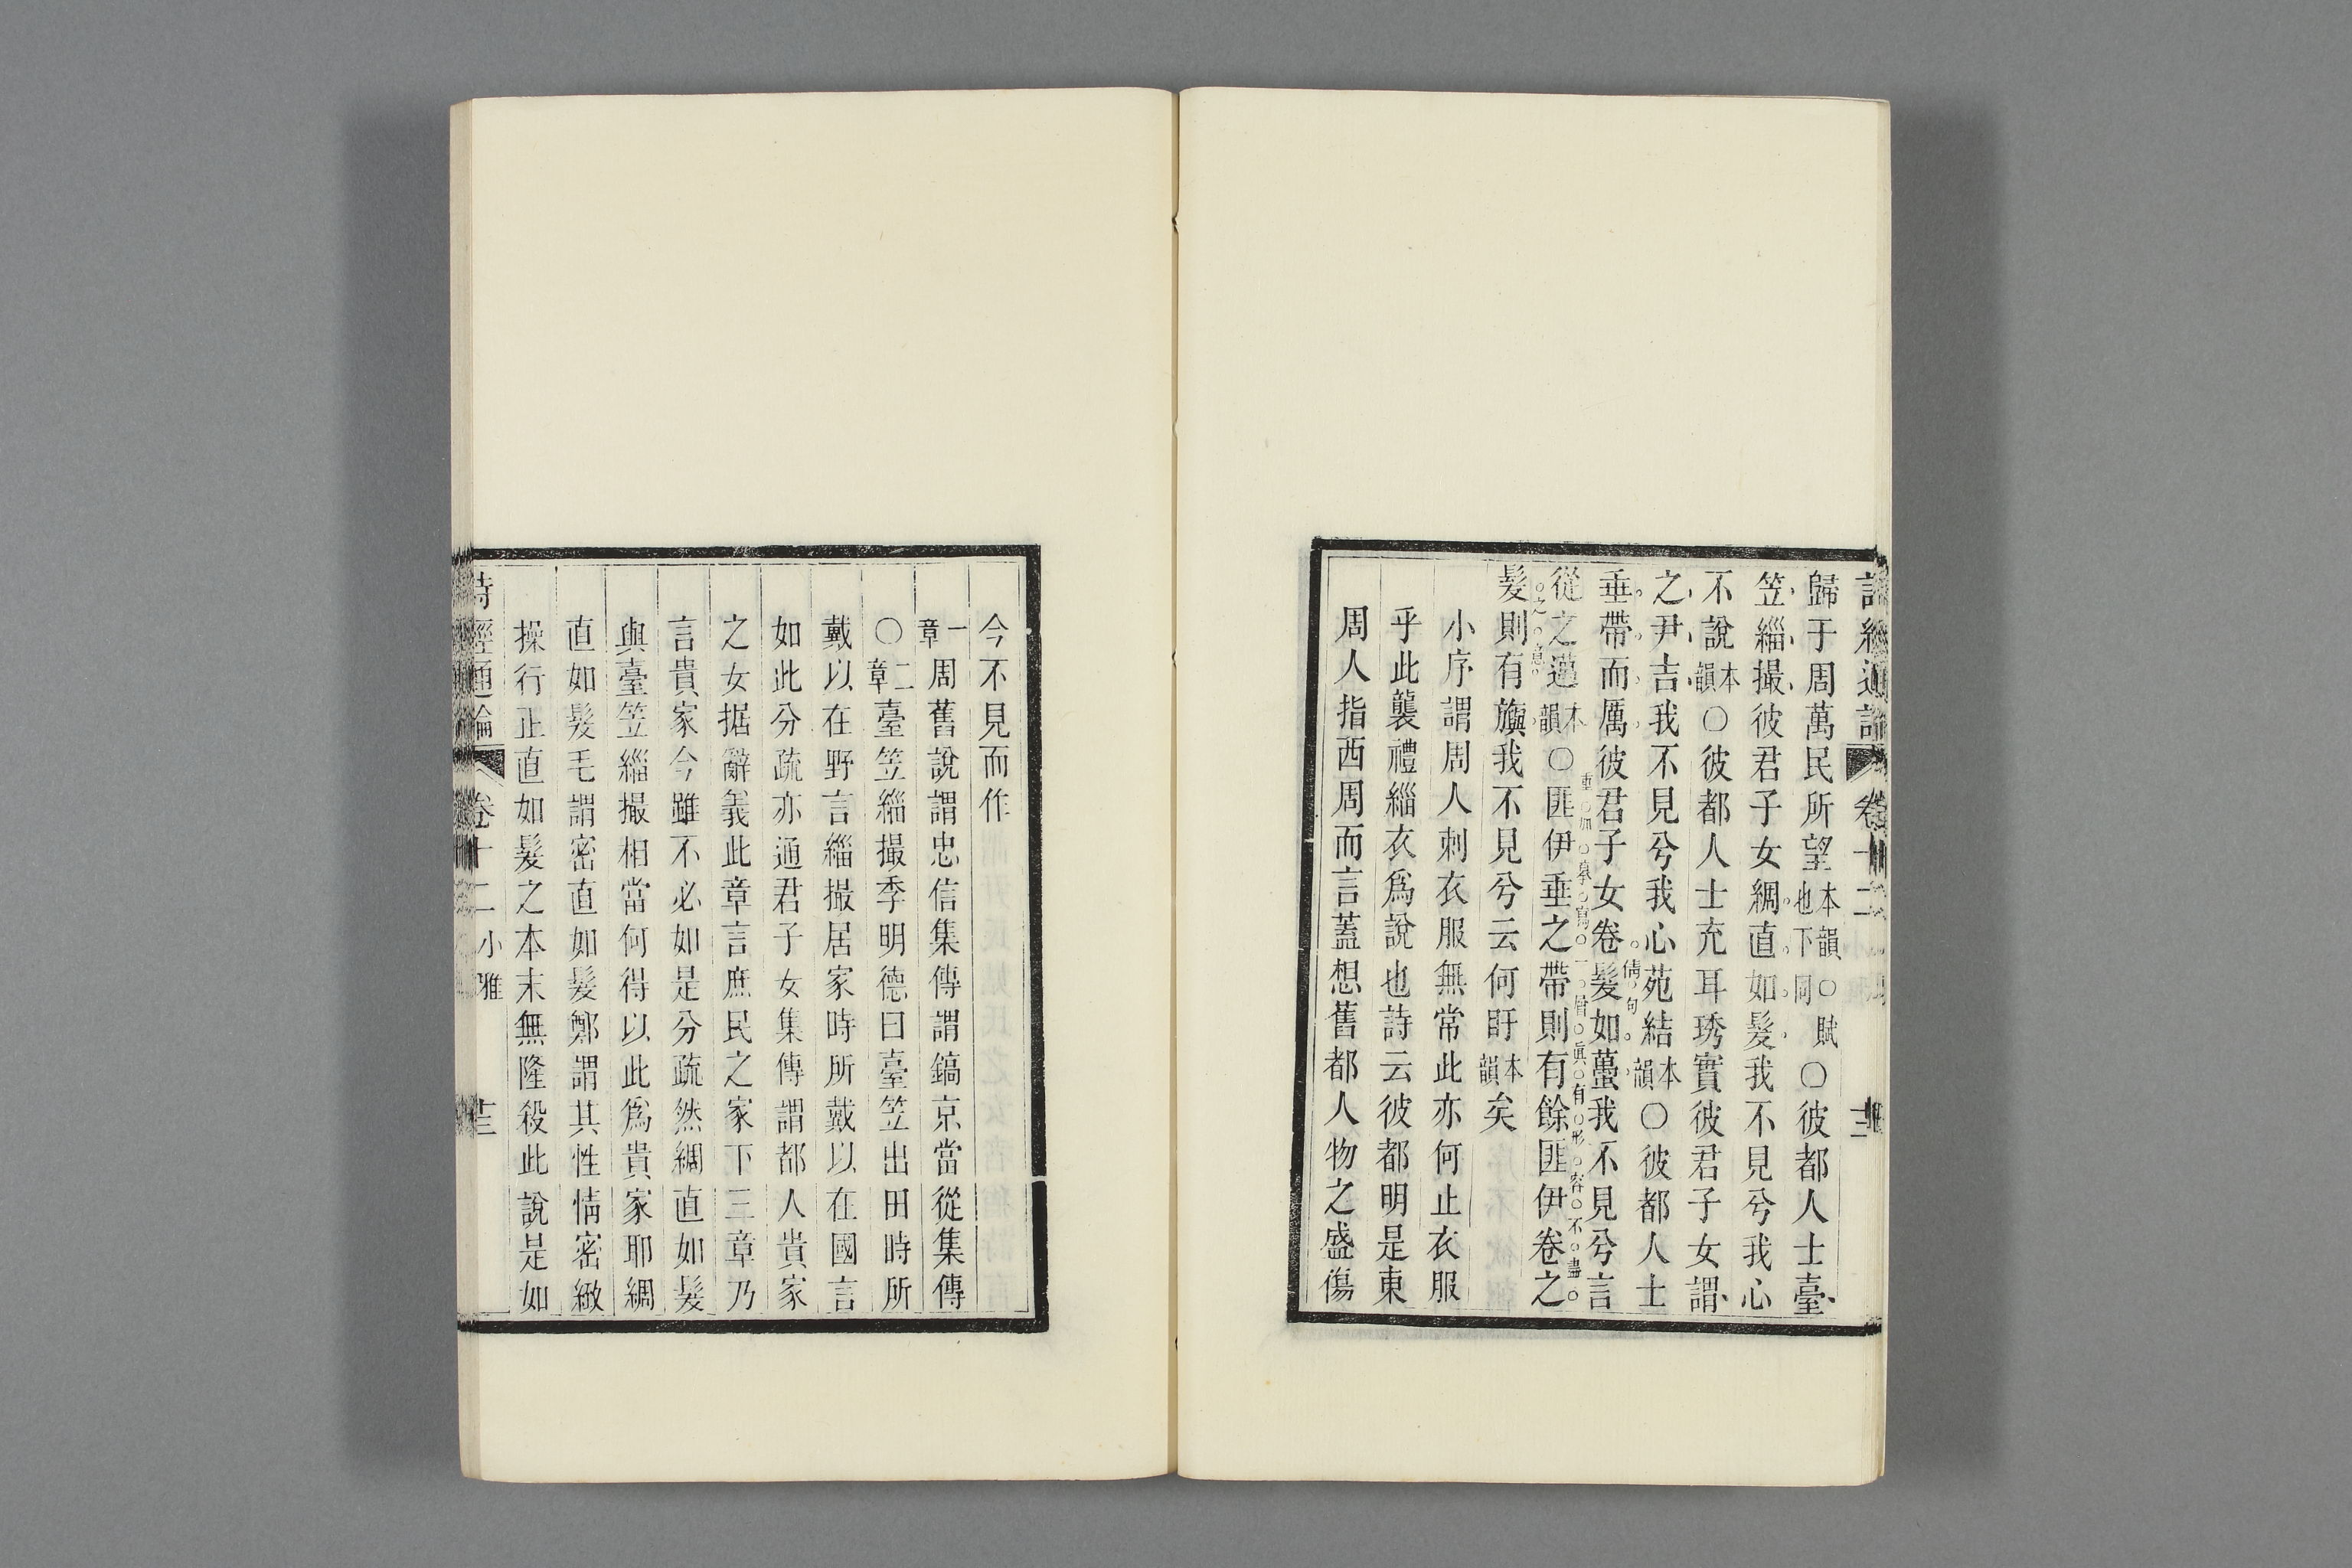 詩經通論 卷十二
歸于周萬民所望本韻○賦也下同○彼都人士臺
笠緇撮彼君子女綢直如髮我不見兮我心
不說本韻○彼都人士充耳琇實彼君子女謂
之尹吉我不見兮我心苑結本韻○彼都人士
倩句
垂帶而厲彼君子女卷髮如蠆我不見兮言
從之邁本韻○匪伊垂之帶則有餘匪伊卷之
髮則有旟我不見兮云何盱本韻矣
小序謂周人刺衣服無常此亦何止衣服
乎此襲禮緇衣爲說也詩云彼都明是東
周人指西周而言蓋想舊都人物之盛傷
今不見而作
一章周舊說謂忠信集傳謂鎬京當從集傳
○二章臺笠緇撮季明德曰臺笠出田時所
戴以在野言緇撮居家時所戴以在國言
如此分疏亦通君子女集傳謂都人貴家
之女据辭義此章言庶民之家下三章乃
言貴家今雖不必如是分疏然綢直如髮
與臺笠緇撮相當何得以此爲貴家耶綢
直如髮毛謂密直如髮鄭謂其性情密緻
操行正直如髮之本末無隆殺此說是如
詩經通論 卷十二 小雅 十三